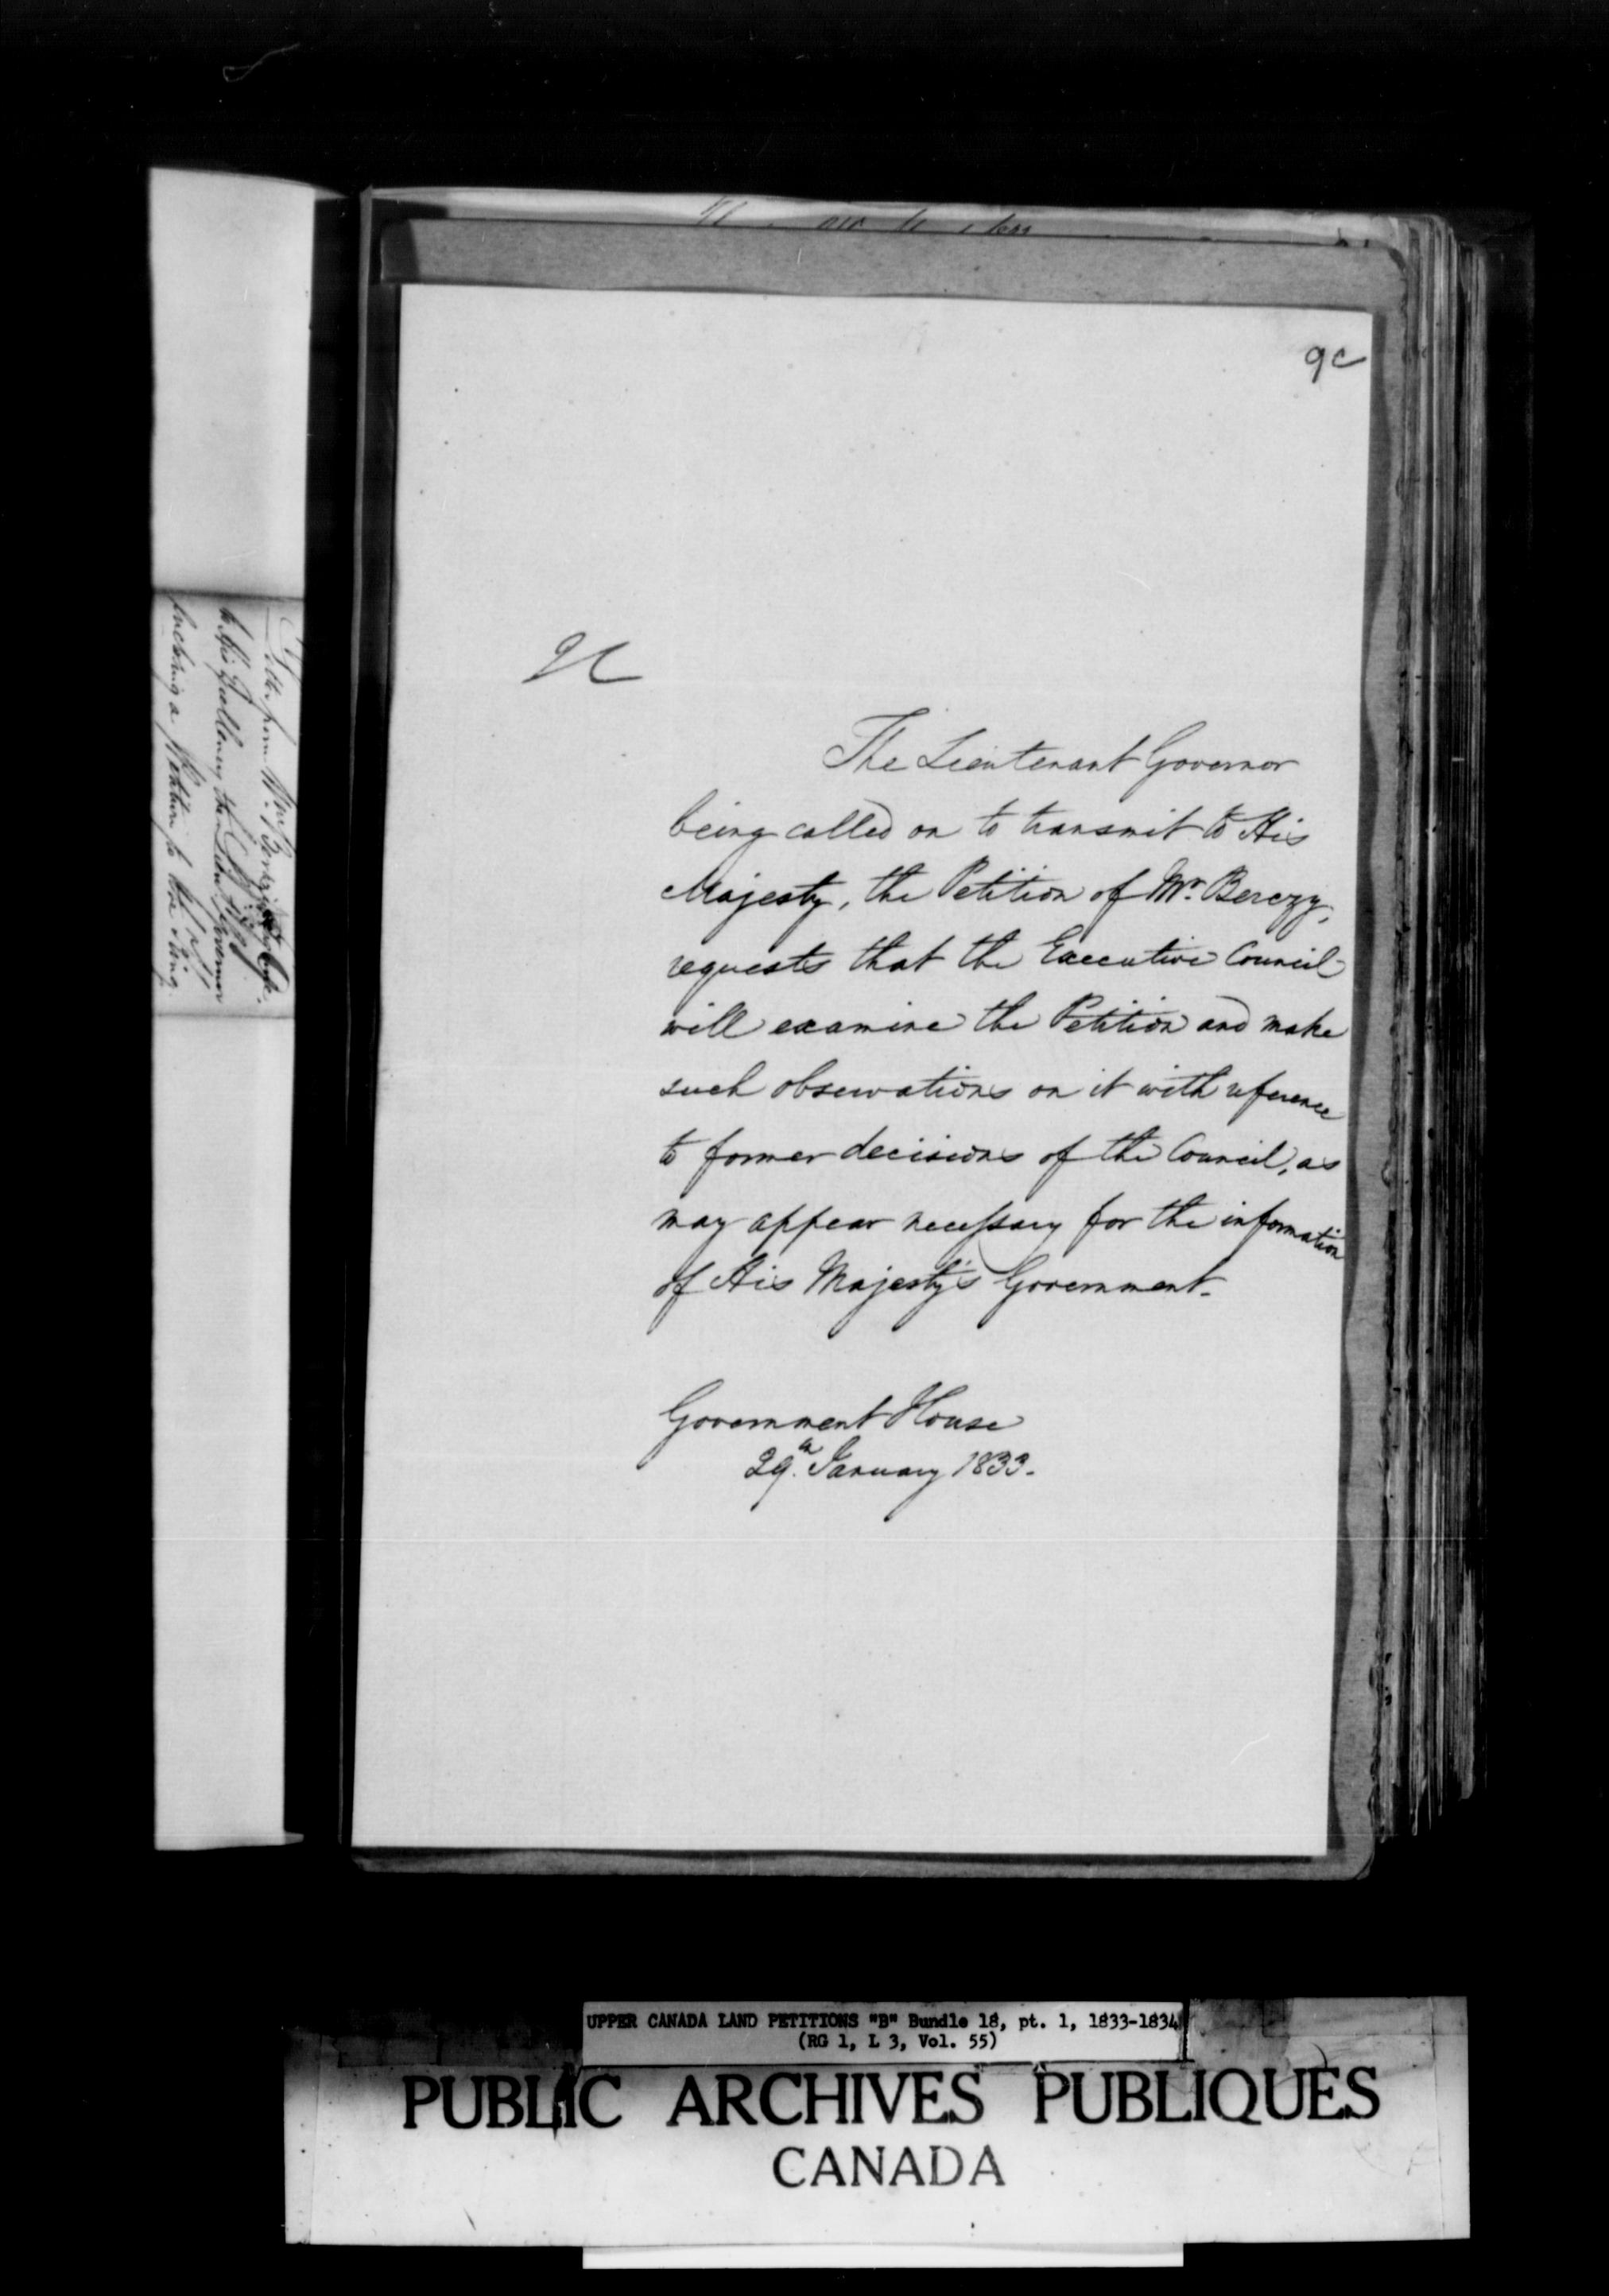 9c
9c
The Lieutenant Governor
being called on to transmit to His
Majesty, the Petition of Mr. Berczy,
requests that the Executive Council
will examine the Petition and make
such observations on it with reference
to former decisions of the Council, as
may appear necessary for the information
of His Majesty's Government.
Government House
29th January 1833.
Letter from Wm. Berczy
to His Excellency the Lieut Governor
enclosing a Petition to the King.
UPPER CANADA LAND PETITIONS "B" Bundle 18, pt. 1, 1833-1834
(RG 1, L 3, Vol. 55)
PUBLIC ARCHIVES PUBLIQUES
CANADA